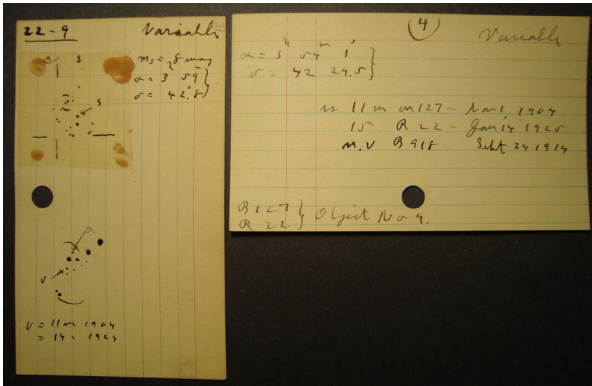 22-9 Variable
S S
m, = 8 mag
α = 3 59
S
δ = 42.8
a
V
V = 11m 1904
= 14 " 1924
4
Variable
h m s
α = 3 54 1
δ = 42 29.5
is 11 m on 127 - Nov 1, 1904
15 R 22 - Jan 14 1925
N.V B 918 Sept 24 1914
B 127
R 22 } Object No 9.